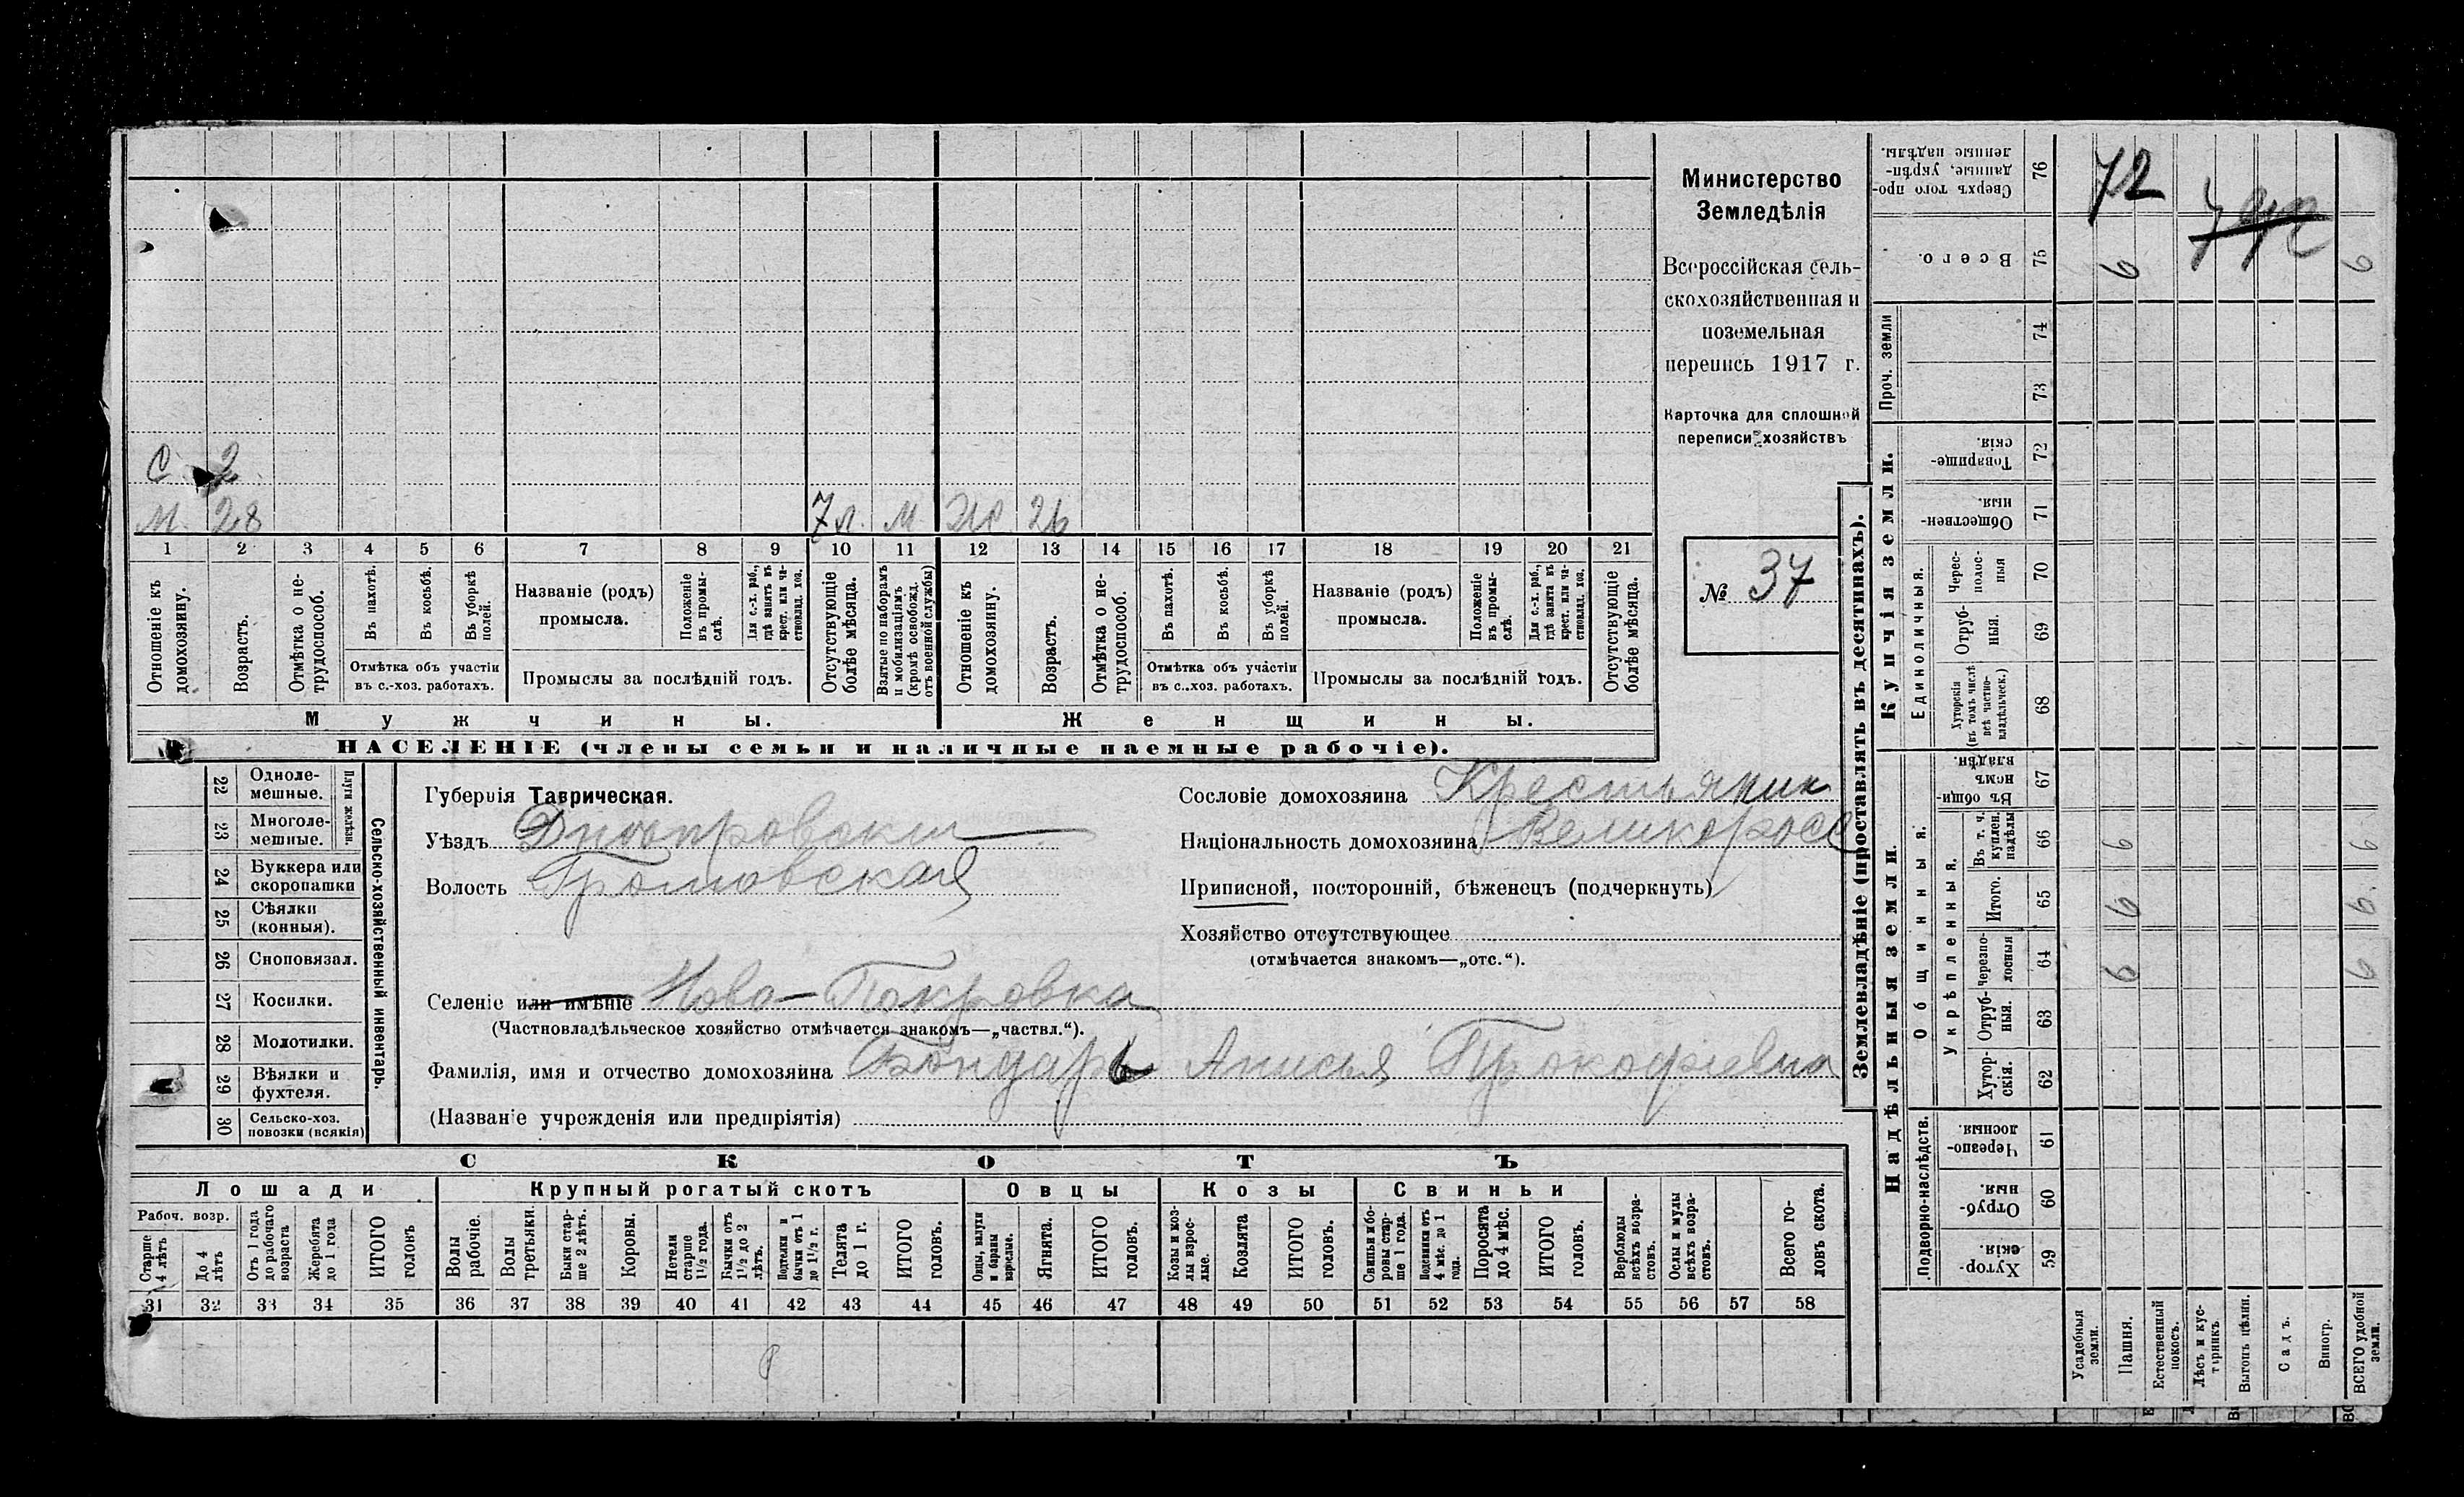 Министерство
Земледѣлія
Всероссійская сель-
скохозяйственная и
поземельная
перепись 1917 г.
Карточка для сплошной
переписи хозяйствъ
№ 37
С 2
М. 28 7 л. М Ж 26
1 2 3 4 5 6 7 8 9 10 11 12 13 14 15 16 17 18 19 20 21
Отношеніе къ домохозяину.
Возрастъ.
Отмѣтка о не-трудоспособ.
Въ пахотѣ.
Въ косьбѣ.
Въ уборкѣ полей.
Отмѣтка объ участіи
въ с.-хоз. работахъ.
Названіе (родъ)
промысла.
Положеніе въ промы-слѣ.
Для с.-х. раб., гдѣ занятъ въ крест. или ча-стновлад. хоз.
Промыслы за послѣдній годъ.
Отсутствующіе болѣе мѣсяца.
Взятые по наборамъ и мобилизаціямъ (кромѣ освобожд. отъ военной службы)
Отношеніе къ домохозяину.
Возрастъ.
Отмѣтка о не-трудоспособ.
Въ пахотѣ.
Въ косьбѣ.
Въ уборкѣ полей.
Отмѣтка объ участіи
въ с.-хоз. работахъ.
Названіе (родъ)
промысла.
Положеніе въ промы-слѣ.
Для с.-х. раб., гдѣ занята въ крест. или ча-стновлад. хоз.
Промыслы за послѣдній годъ.
Отсутствующіе болѣе мѣсяца.
Мужчины. Женщины.
НАСЕЛЕНІЕ (члены семьи и наличные наемные рабочіе).
Сельско-хозяйственный инвентарь.
Плуги желѣзн.
22 Одноле-мешные.
23 Многоле-мешные.
24 Буккера или скоропашки
25 Сѣялки (конныя).
26 Сноповязал.
27 Косилки.
28 Молотилки.
29 Вѣялки и фухтеля.
30 Сельско-хоз. повозки (всякія)
Губернія Таврическая.
Уѣздъ Днѣпровскій
Волость Громовская
Селеніе или имѣніе Ново-Покровка
(Частновладѣльческое хозяйство отмѣчается знакомъ—„частвл.“).
Фамилія, имя и отчество домохозяина Бондарь Анисья Прокофіевна
(Названіе учрежденія или предпріятія)
Сословіе домохозяина Крестьянин
Національность домохозяина Великоросс
Приписной, посторонній, бѣженецъ (подчеркнуть)
Хозяйство отсутствующее
(отмѣчается знакомъ—„отс.“).
СКОТЪ
Лошади Крупный рогатый скотъ Овцы Козы Свиньи
Рабоч. возр.
Старше 4 лѣтъ
До 4 лѣтъ
Отъ 1 года до рабочаго возраста
Жеребята до 1 года
ИТОГО головъ
Волы рабочіе.
Волы третьяки.
Быки стар-ше 2 лѣтъ.
Коровы.
Нетели старше 1½ года.
Бычки отъ 1½ до 2 лѣтъ.
Подтелки и бычки отъ 1 до 1½ г.
Телята до 1 г.
ИТОГО головъ.
Овцы, валухи и бараны взрослые.
Ягнята.
ИТОГО головъ.
Козы и коз-лы взрос-лые.
Козлята
ИТОГО головъ.
Свиньи и бо-ровы стар-ше 1 года.
Подсвинки отъ 4 мѣс. до 1 года.
Поросята до 4 мѣс.
ИТОГО головъ.
Верблюды всѣхъ возра-стовъ.
Ослы и мулы всѣхъ возра-стовъ.
Всего го-ловъ скота.
31 32 33 34 35 36 37 38 39 40 41 42 43 44 45 46 47 48 49 50 51 52 53 54 55 56 57 58
Землевладѣніе (проставлять въ десятинахъ).
Купчія земли.
Надѣльныя земли.
Сверхъ того про-данные, укрѣп-ленные надѣлы. 76 72
Всего. 75 6 6
Проч. земли 74
73
Товарище-скія. 72
Обществен-ныя. 71
Единоличныя.
Черес-полос-ныя 70
Отруб-ныя. 69
Хуторскія (въ томъ числѣ всѣ частно-владѣльческ.) 68
Общинныя.
Въ общин-номъ владѣн. 67
Укрѣпленныя.
Въ т. ч. куплен. надѣлы 66 6 6
Итого. 65 6 6
Черезпо-лосныя 64 6 6
Отруб-ныя. 63
Хутор-скія. 62
Подворно-наслѣдств.
Черезпо-лосныя. 61
Отруб-ныя. 60
Хутор-скія. 59
Усадебныя земли.
Пашня.
Естественный покосъ.
Лѣсъ и кус-тарникъ.
Выгонъ цѣлин.
Садъ.
Виногр.
ВСЕГО удобной земли.